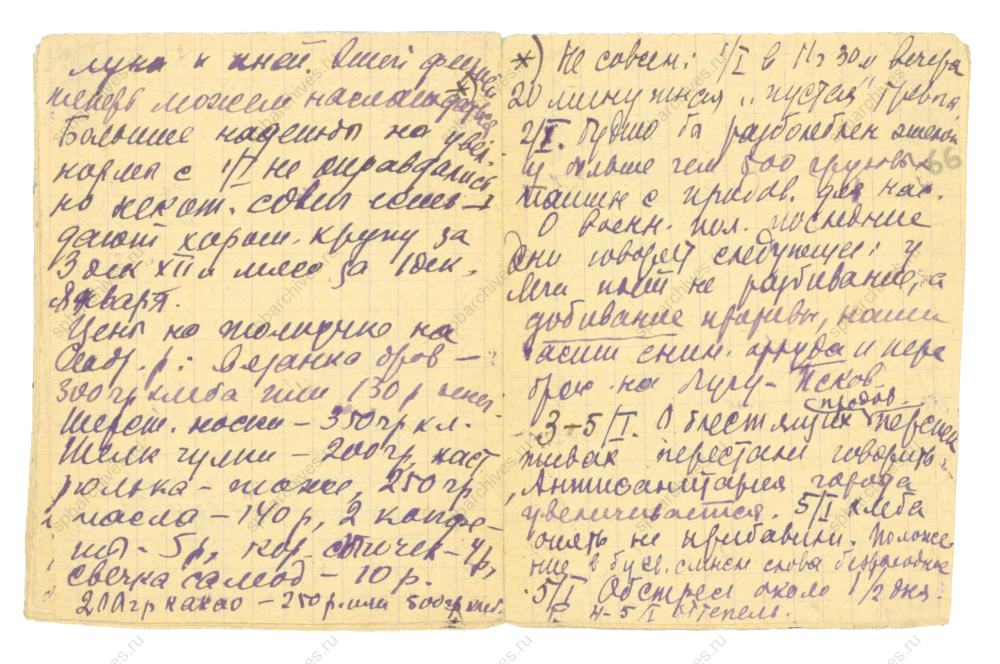 луна и иней. Этой
теперь можем наслаждаться
Больше надежды на увел.
нормы с 1/I не оправдались
но некот.
дают хорош. крупу за
3 дек XII и мясо за 1 дек.
января.
Цены на толкучке на
р.: Вязанка дров —
300 гр хлеба или 130 р
Шерст. носки — 350 гр хл.
Шелк чулки — 200 гр, каст
рюлька — тоже, 250 гр
масла — 140 р, 2 конфе-
ты — 5 р, кор. спичек — 4 р,
свечка самод — 10 р.
200 гр какао — 250 р. или 500 гр хлеб.
*) Не совсем: 1/I в 11 ч 30 м вечера
20 минутная „пустая" тревога
2/I. Будто бы разбомблен эшелон
и больше чем 800 грузовых
машин с продов. для нас.
О военн. пол. последние
дни говорят следующее: у
Мги идет не разбивание, а
добивание прорывы, наши
части сним. оттуда и пере
брос. на Лугу — Псков.
3–5/I. О блестящих продов. перспек
тивах перестали говорить.
Антисанитария города
увеличивается. 5/I хлеба
опять не прибавили. Положе-
ние в букв. смысле слова безвыходное
5/I Обстрел около 1/2 дня.
4–5/I оттепель.
66
spbarchives.ru